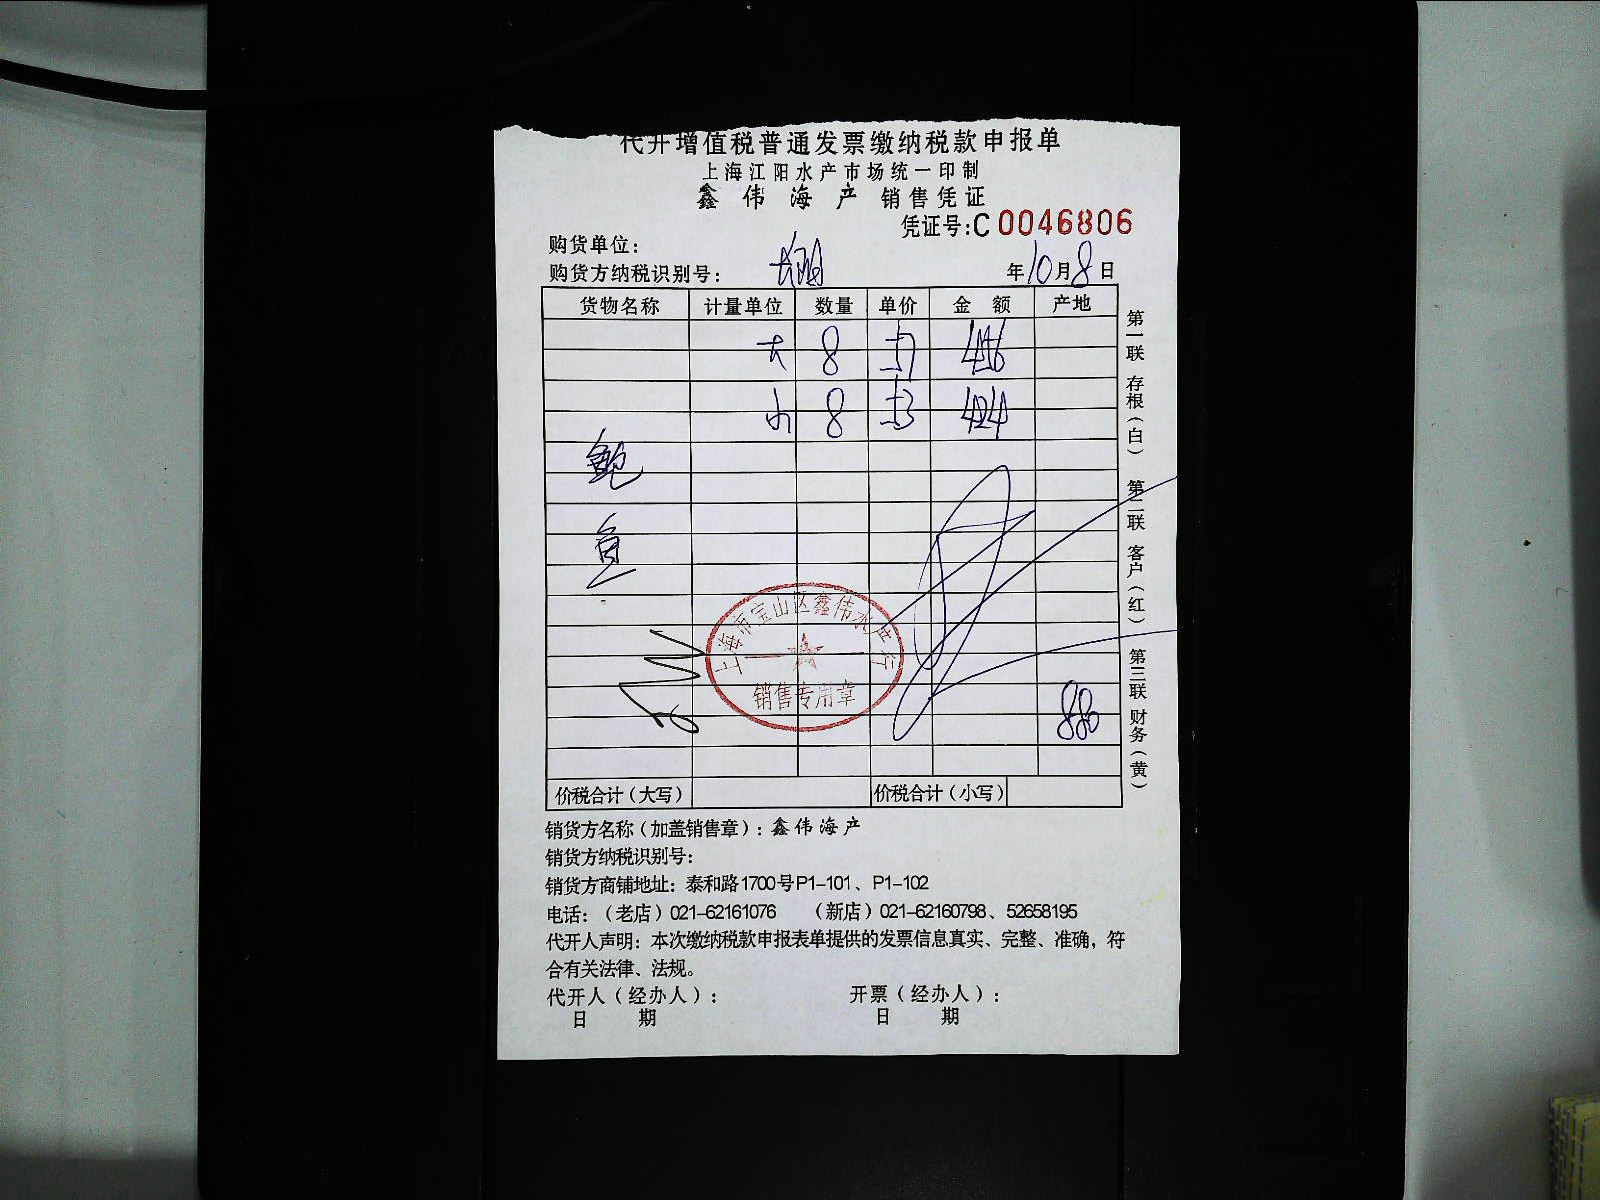 代开增值税普通发票缴纳税款申报单
上海江阳水产市场统一印制
鑫伟海产 销售凭证
凭证号:C 0046806
购货单位:
购货方纳税识别号: 年10月8日
货物名称 计量单位 数量 单价 金额 产地
大 8 57 456
小 8 53 424
鲍
鱼
上海市宝山区鑫伟水产行
销售专用章
880
价税合计(大写) 价税合计(小写)
第一联 存根(白) 第二联 客户(红) 第三联 财务(黄)
销货方名称(加盖销售章): 鑫伟海产
销货方纳税识别号:
销货方商铺地址: 泰和路1700号P1-101、P1-102
电话: (老店) 021-62161076 (新店) 021-62160798、52658195
代开人声明: 本次缴纳税款申报表单提供的发票信息真实、完整、准确, 符
合有关法律、法规。
代开人(经办人): 开票(经办人):
日期 日期